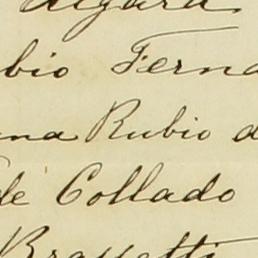 Algara
bio Ferna
na Rubio d
de Collado
Brassetti